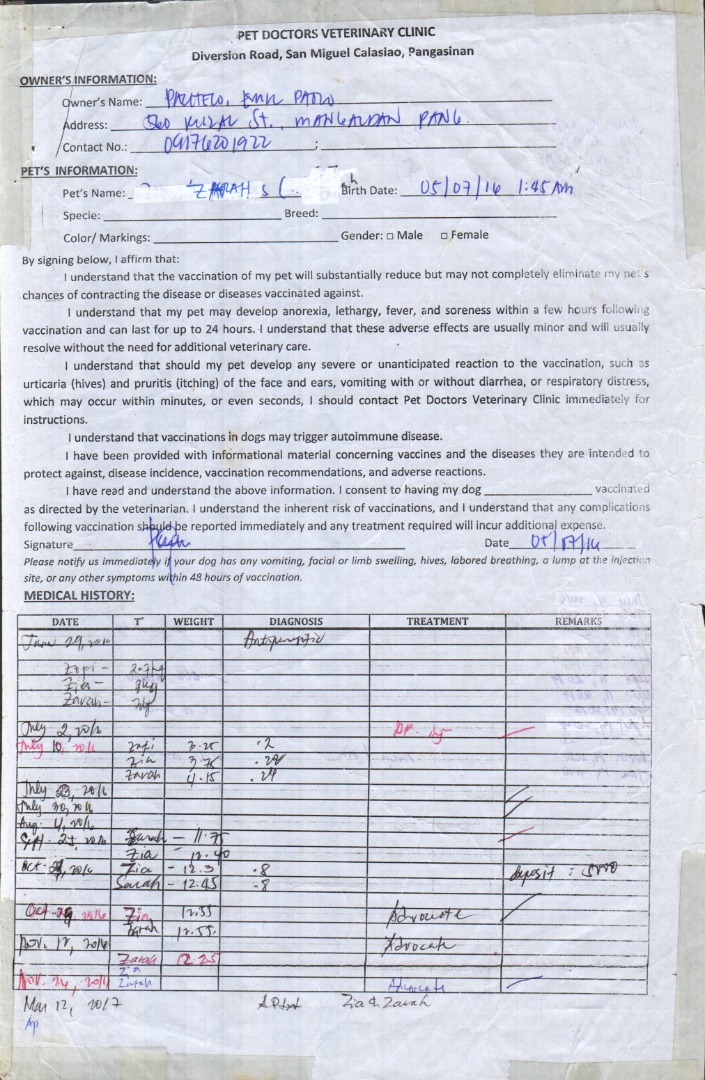 PET DOCTORS VETERINARY CLINIC
Diversion Road, San Miguel Calasiao, Pangasinan
OWNER'S INFORMATION:
Owner's Name: PAOLO
Address: 560 RIZAL St., MANGALDAN PANG.
Contact No.: 09176201922 ;
PET'S INFORMATION:
Pet's Name: ZARAH Birth Date: 05/07/16 1:45 AM
Specie: Breed:
Color/ Markings: Gender: □ Male □ Female
By signing below, I affirm that:
I understand that the vaccination of my pet will substantially reduce but may not completely eliminate my pet's
chances of contracting the disease or diseases vaccinated against.
I understand that my pet may develop anorexia, lethargy, fever, and soreness within a few hours following
vaccination and can last for up to 24 hours. I understand that these adverse effects are usually minor and will usually
resolve without the need for additional veterinary care.
I understand that should my pet develop any severe or unanticipated reaction to the vaccination, such as
urticaria (hives) and pruritis (itching) of the face and ears, vomiting with or without diarrhea, or respiratory distress,
which may occur within minutes, or even seconds, I should contact Pet Doctors Veterinary Clinic immediately for
instructions.
I understand that vaccinations in dogs may trigger autoimmune disease.
I have been provided with informational material concerning vaccines and the diseases they are intended to
protect against, disease incidence, vaccination recommendations, and adverse reactions.
I have read and understand the above information. I consent to having my dog vaccinated
as directed by the veterinarian. I understand the inherent risk of vaccinations, and I understand that any complications
following vaccination should be reported immediately and any treatment required will incur additional expense.
Signature Date
Please notify us immediately if your dog has any vomiting, facial or limb swelling, hives, labored breathing, a lump at the injection
site, or any other symptoms within 48 hours of vaccination.
MEDICAL HISTORY:
DATE T° WEIGHT DIAGNOSIS TREATMENT REMARKS
June 29, 2016
Zia -
Zarah -
July 2, 2016
July 10, 2016 3.25 .2
Zia 3.75
Zarah 4.15
July 2016
July 30, 2016
Aug. 4, 2016
Sept. 25, 2016 Zarah - 11.75
Zia 12.40
Oct. 2016 Zia - 12.3 .8 deposit :
Sarah - 12.45 .8
Oct. 29 2016 Zia 12.55 Advocate
Zarah 12.55
Nov. 12, 2016 Advocate
Zarah 12.25
Zia
Nov. 24, 2016 Zarah Advocate
Mar 12, 2017 Zia & Zarah